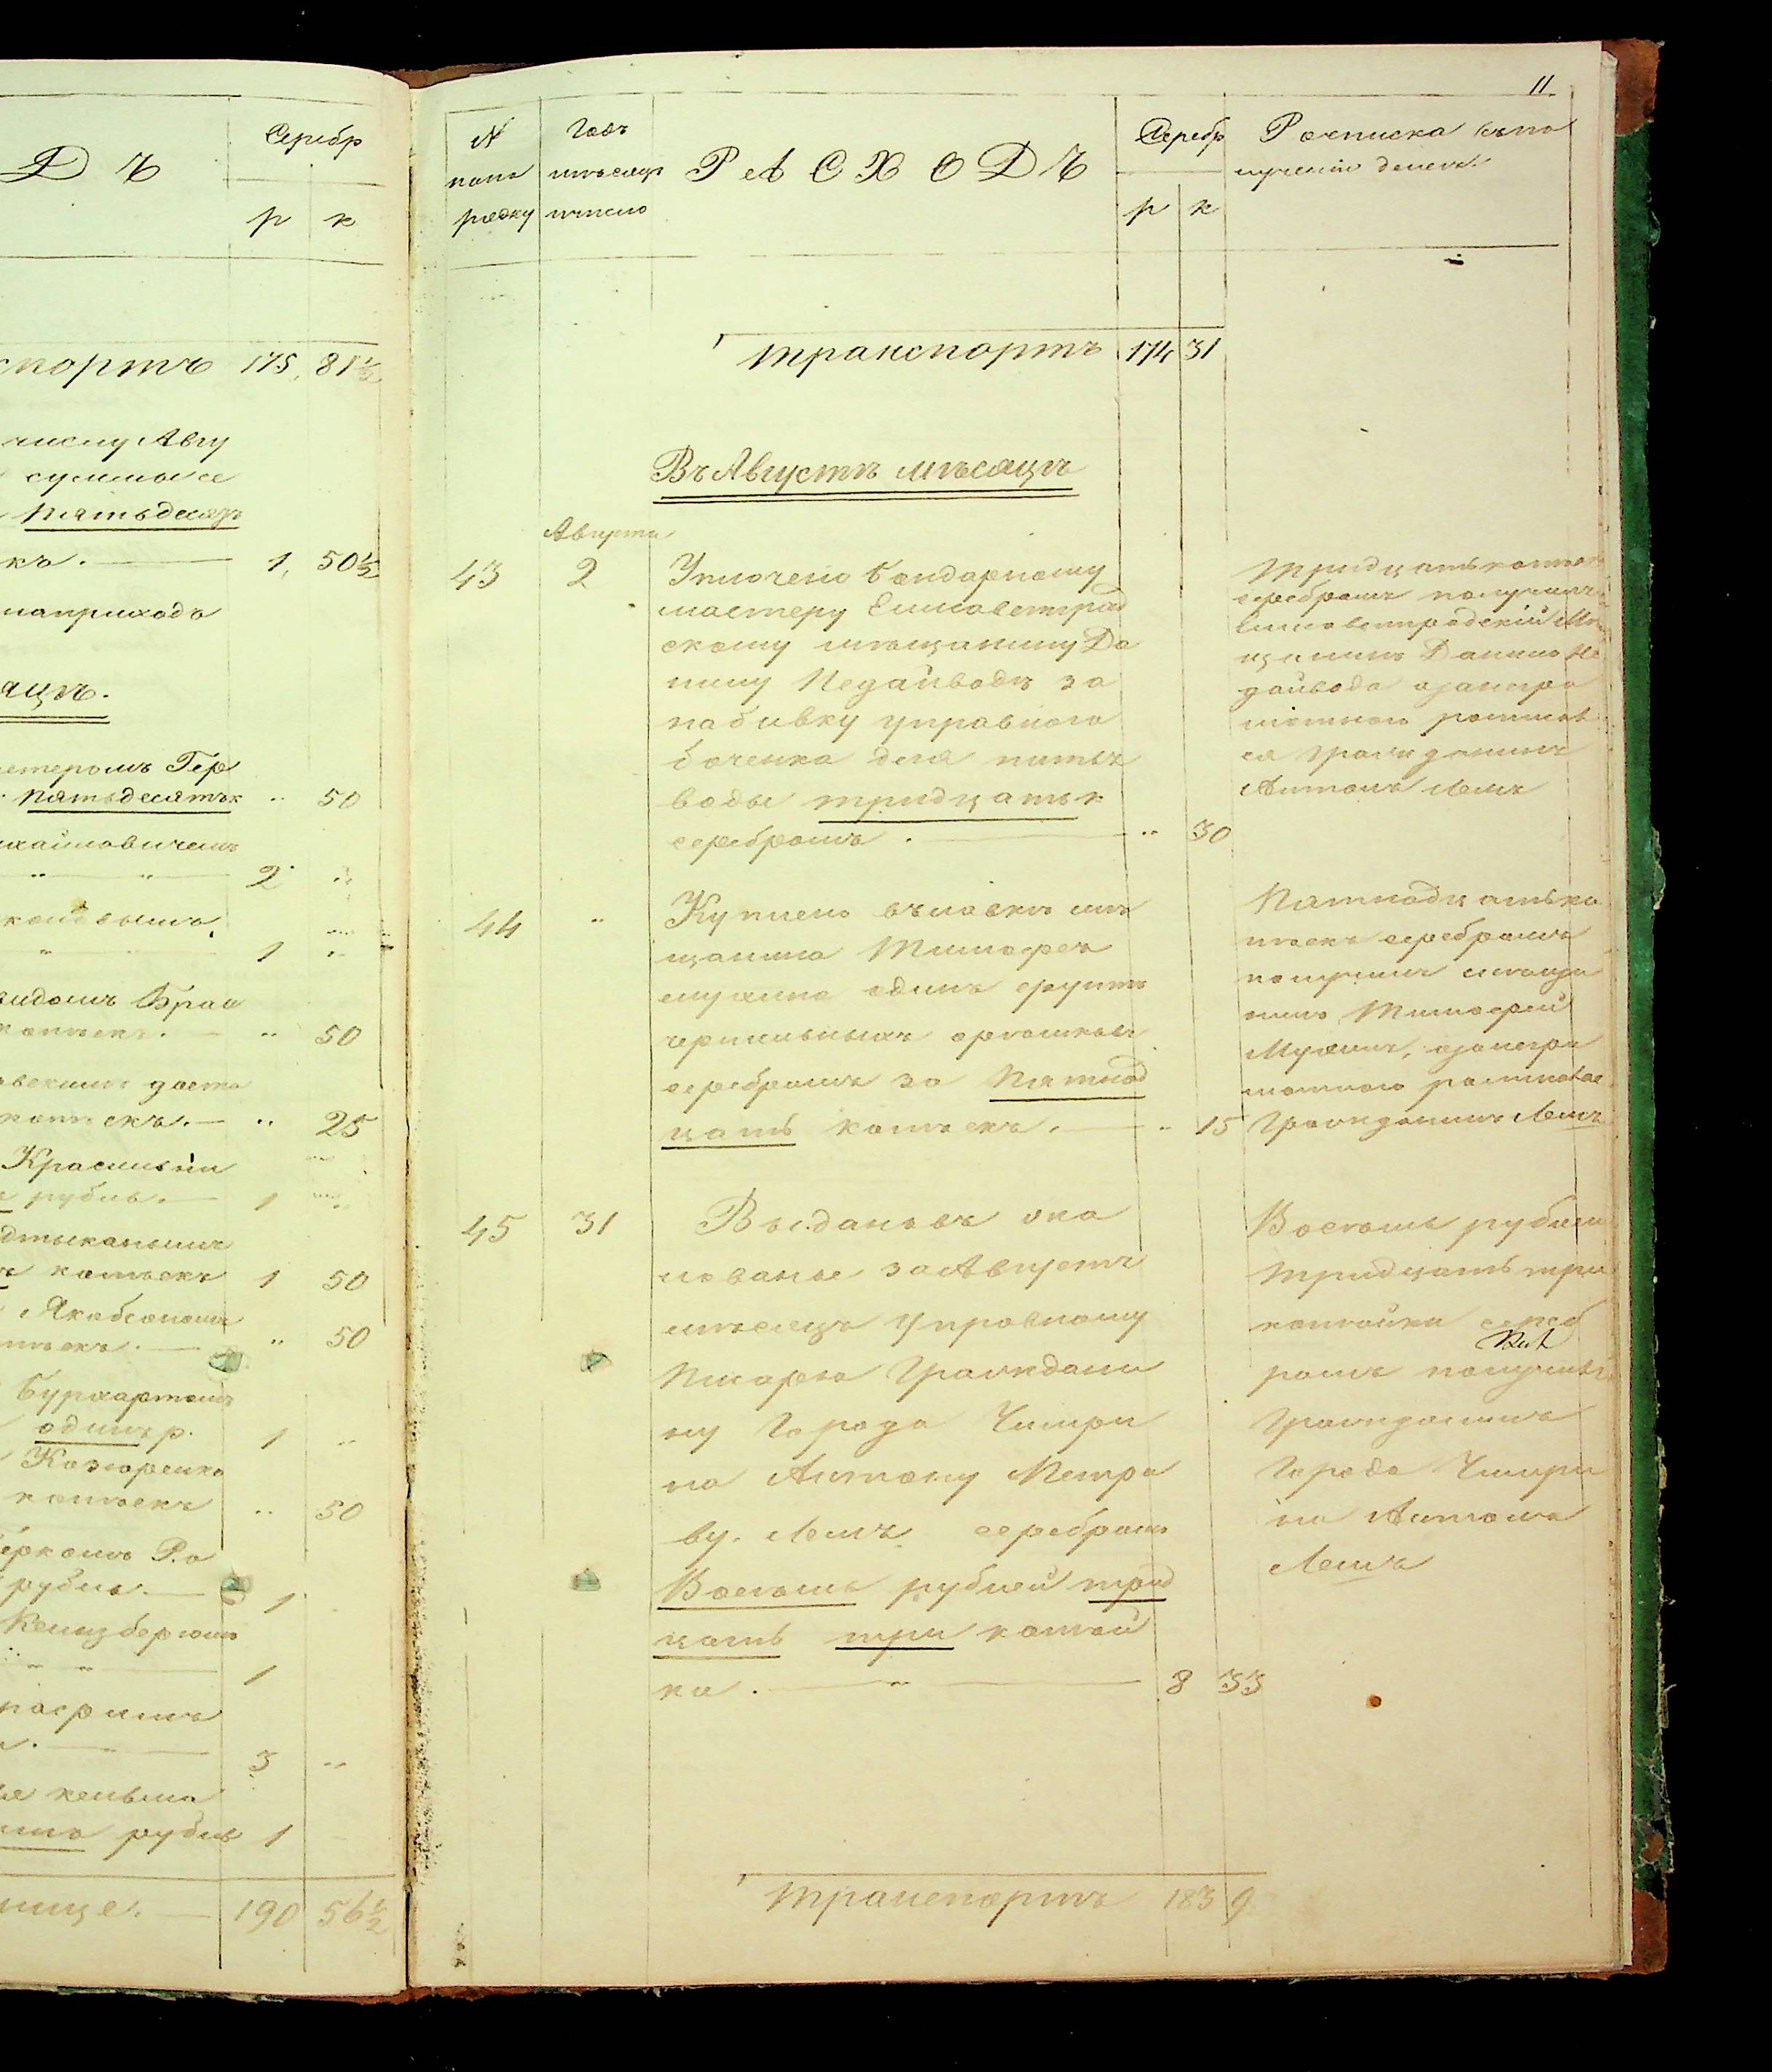 Д Ъ
Серебр
р к
спортъ 175 81½
числу Авгу
суммы се
Пятьдесятъ
къ. 1 50½
наприходъ
яцъ.
етеромъ Гер
Пятьдесятъ к „ 50
хайловичемъ
„ „ 2 „
ковымъ
„ 1 „
видомъ Брая
копѣекъ. „ 50
копѣекъ. „ 25
Красильни
рубль. 1
ъ копѣекъ 1 50
Якобсономъ
пѣекъ. „ 50
Бурхартомъ
одинъ р. 1 „
Козюренко
копѣекъ „ 50
рубль. 1
Кенизбергомъ
„ „ 1
3 „
рубль 1
нице. 190 56½
11
№
попо
рядку
Годъ
мѣсяцъ
ичисло
Р А С Х О Д Ъ
Серебр
р к
Росписка впо
лученіи денегъ.
транспортъ 174 31
Въ Августѣ мѣсяцѣ
Августа
43 2 Уплочено бондарному
мастеру Елисаветград
скому мѣщанину Да
нилу Недайводѣ за
набивку управного
боченка для питья
воды тридцать к
серебромъ . „ 30
Тридцать копѣекъ
серебромъ получилъ
Елисаветградскій Мѣ
щанинъ Данило Не
дайвода азанегра
мотного росписал
ся Гражданинъ
Антонъ Лемъ
44 „ Куплено въ лавкѣ мѣ
щанина Тимофея
Мухина одинъ фунтъ
чернильныхъ орѣшковъ
серебромъ за Пятнад
цать копѣекъ. „ 15
Пятнадцать ко
пѣекъ серебромъ
получилъ мѣща
нинъ Тимофей
Мухинъ, азанегра
мотного росписался
Гражданинъ Лемъ
45 31 Выдановъ жа
лованье за Августъ
мѣсяцъ Управному
Писарю Граждани
ну Города Чигри
на Антону Петро
ву. Лемъ серебромъ
Восемь рублей трид
цать три копѣй
ки . „ 8 33
Восемь рублей
Тридцать три
копѣйки сереб
ромъ получилъ
Гражданинъ
Города Чигри
на Антонъ
Лемъ
транспортъ 183 9